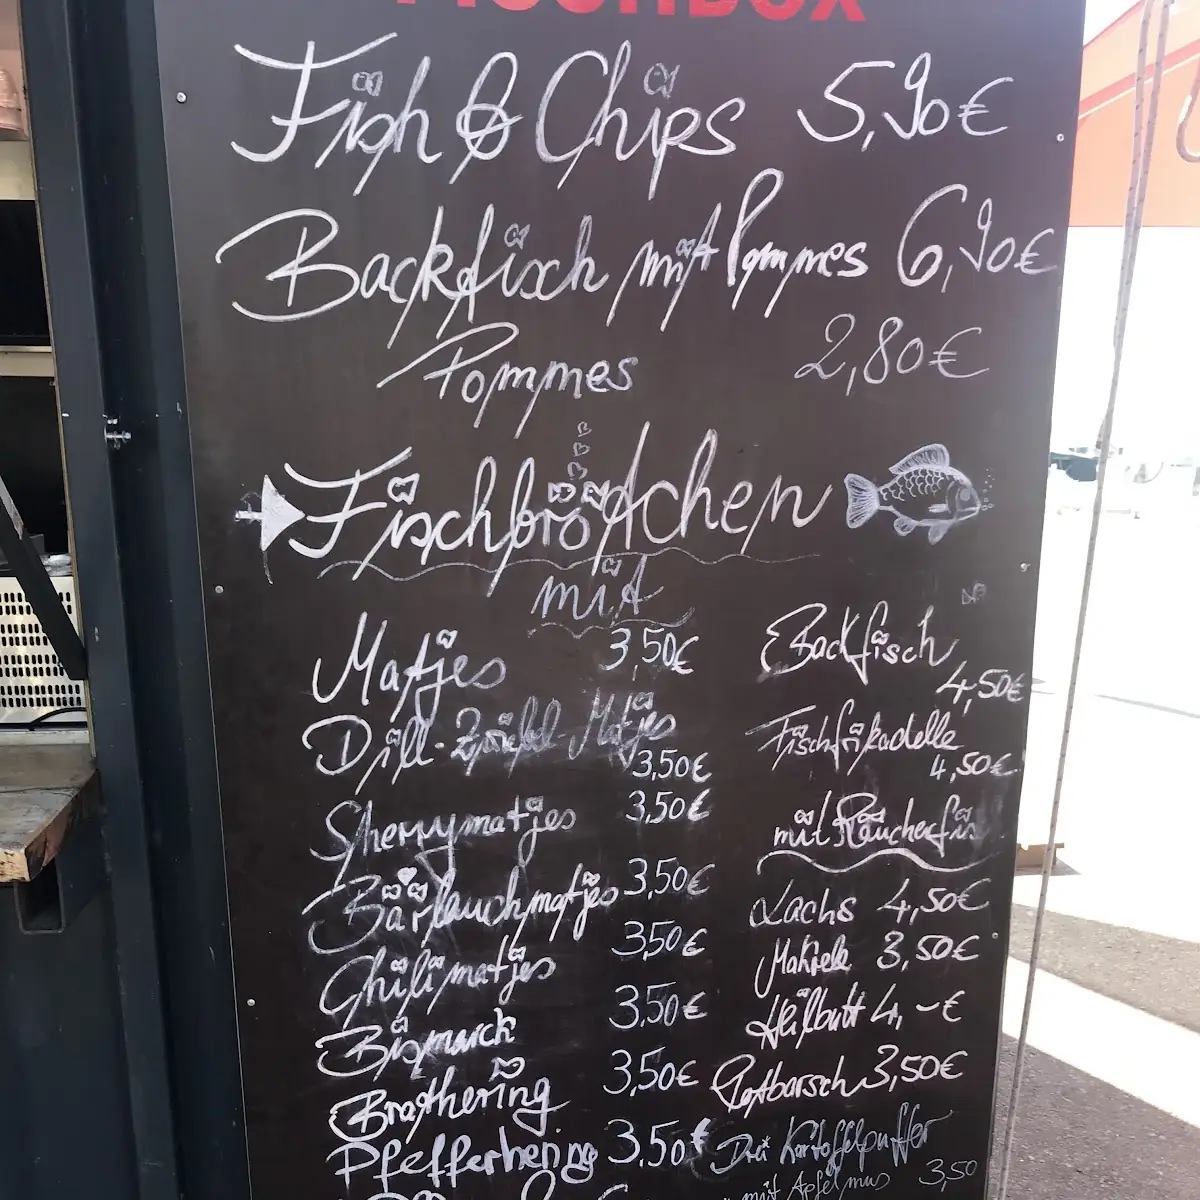 FISCHBOX
Fish & Chips 5,90€
Backfisch mit Pommes 6,90€
Pommes 2,80€
Fischbrötchen
mit
Matjes 3,50€
Dill-Zwiebel-Matjes
3,50€
Sherrymatjes 3,50€
Bärlauchmatjes 3,50€
Chilimatjes 3,50€
Bismarck 3,50€
Brathering 3,50€
Pfefferhering 3,50€
Backfisch
4,50€
Fischfrikadelle
4,50€
mit Räucherfis
Lachs 4,50€
Makrele 3,50€
Heilbutt 4,-€
Rotbarsch 3,50€
Drei Kartoffelpuffer
mit Apfelmus 3,50